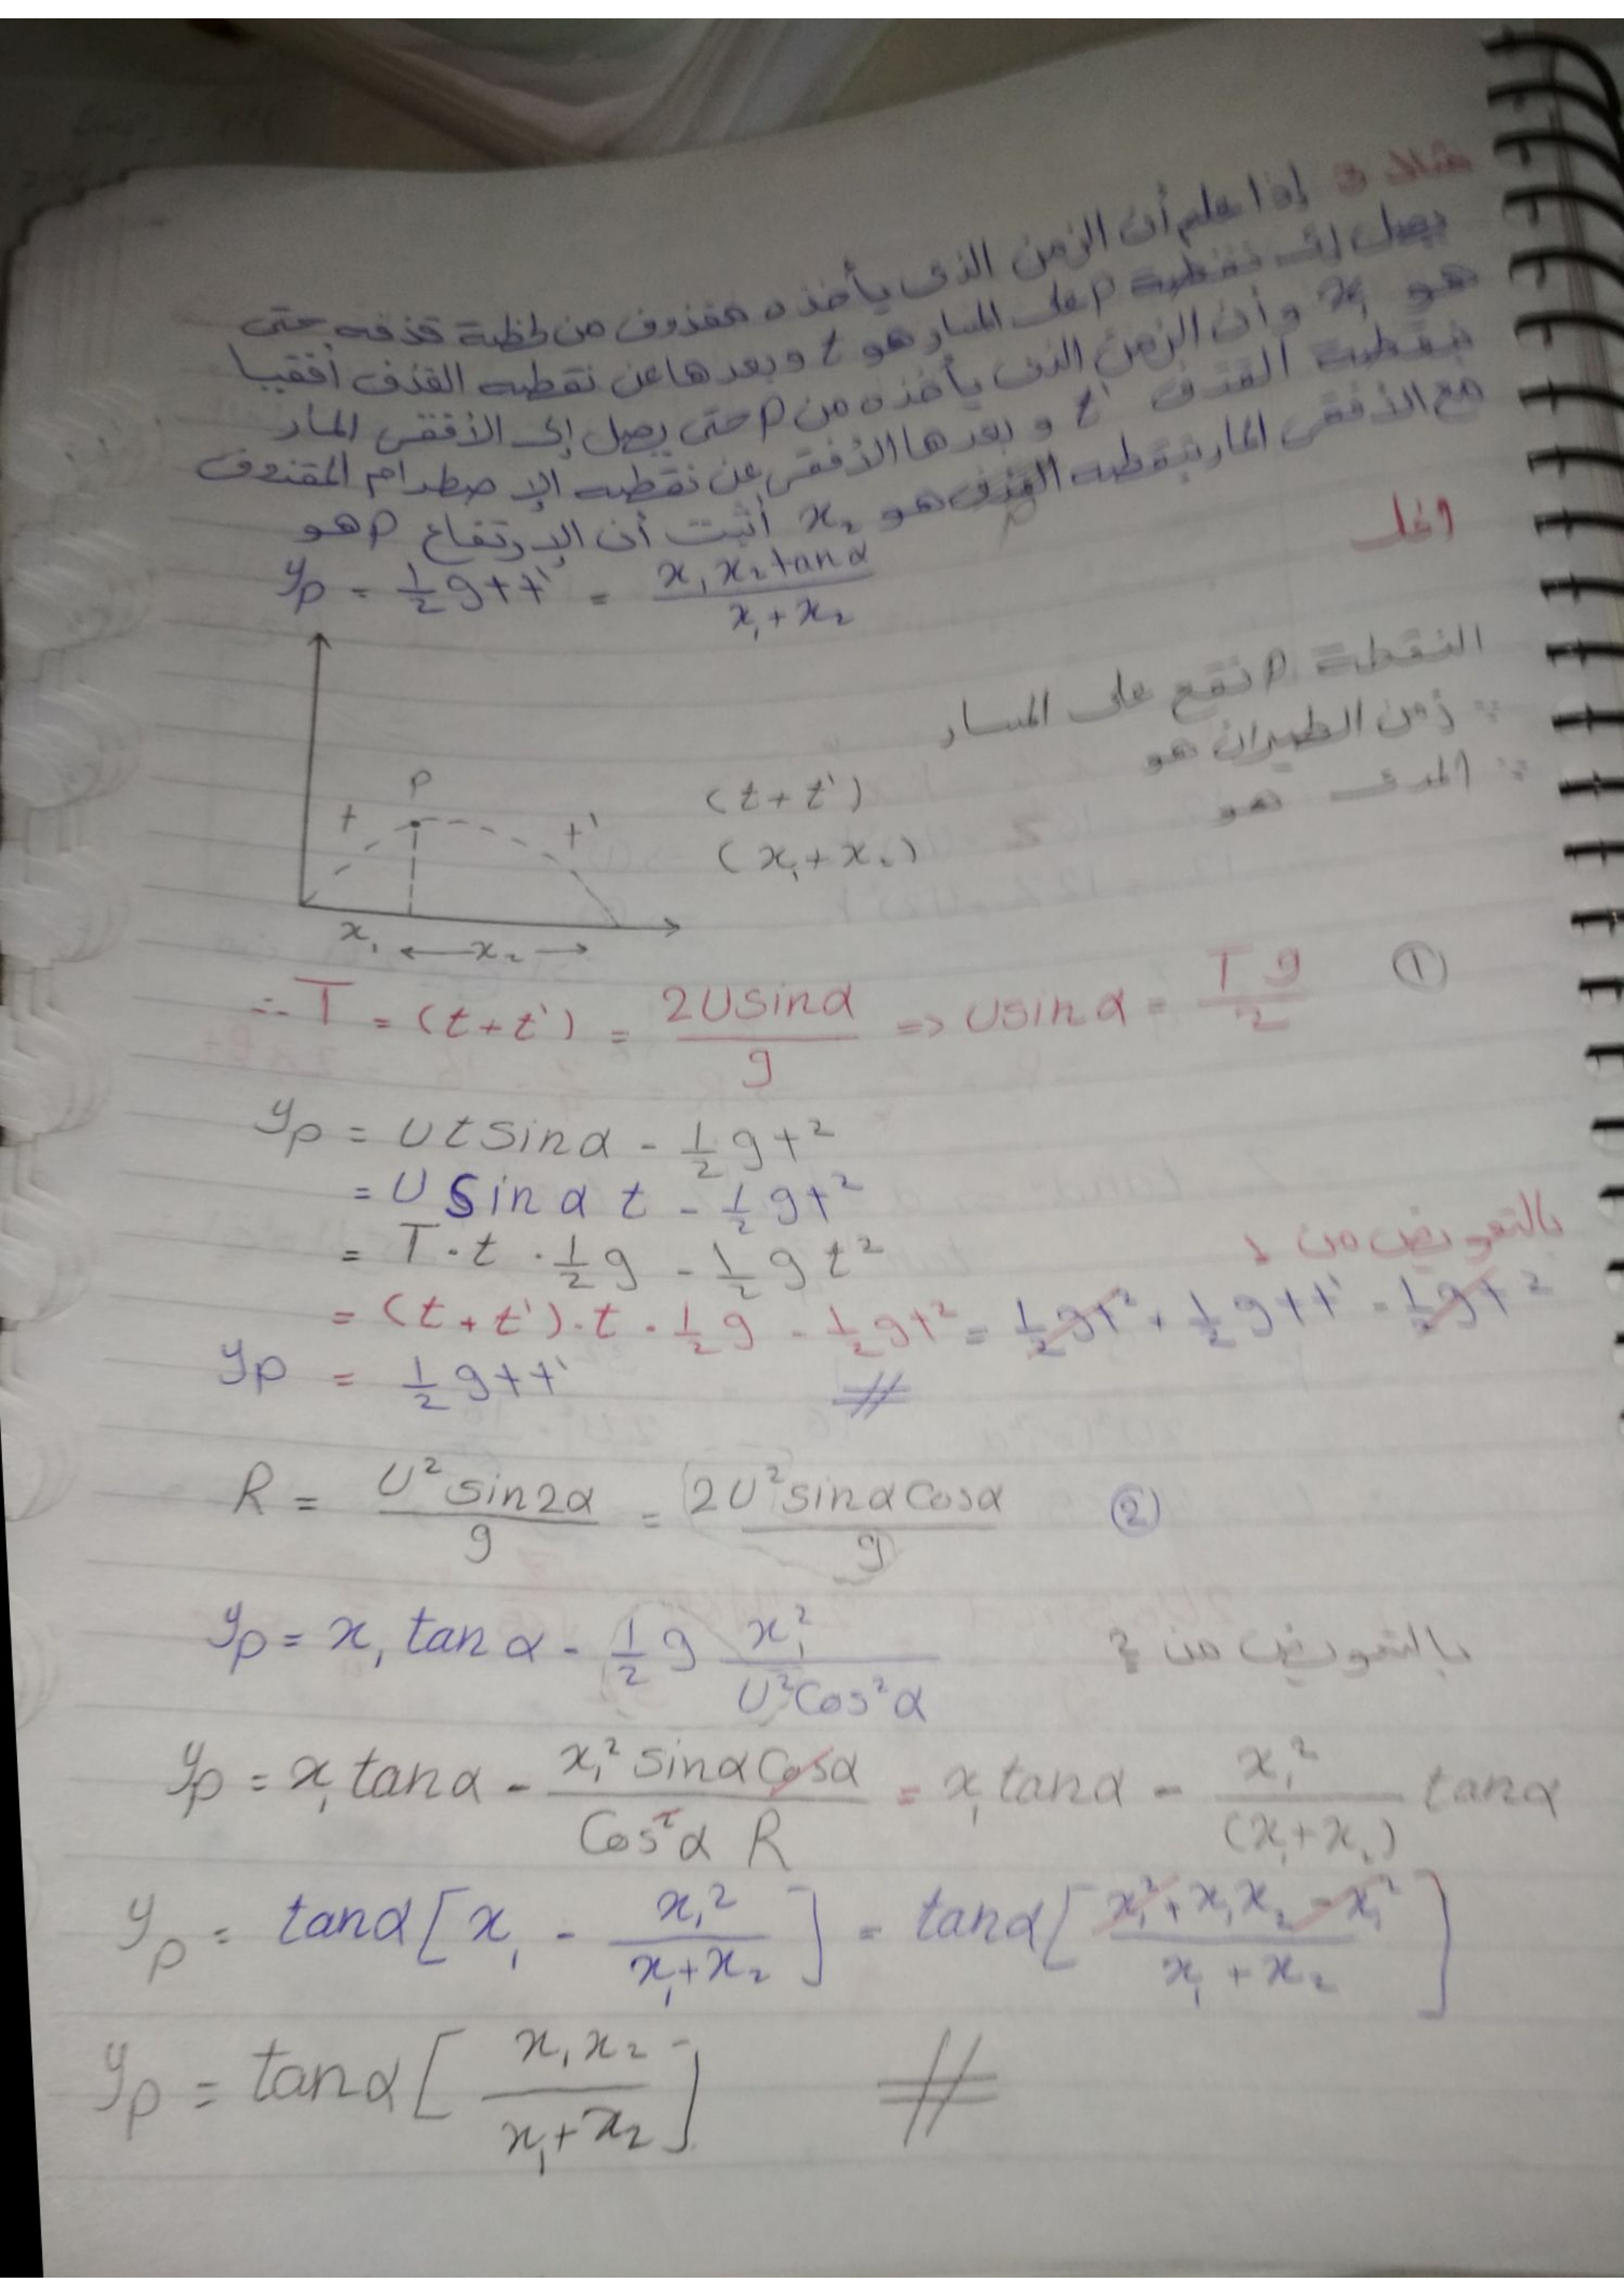 مثال 3 إذا علم أن الزمن الذى يأخذه مقذوف من لحظة قذفه حتى
يصل إلى نقطة P على المسار هو t وبعدها عن نقطه القذف أفقيا
هو x₁ وأن الزمن الذى يأخذه من P حتى يصل إلى الأفقى المار
بنقطة القذف t' وبعدها الأفقى عن نقطه الإصطدام المقذوف
مع الأفقى المار بنقطه القذف هو x₂ أثبت أن الإرتفاع P هو
y_P = ½ g t t' = x₁ x₂ tan α / (x₁ + x₂)
الحل
النقطة P تقع على المسار
∵ زمن الطيران هو (t + t')
∵ المدى هو (x₁ + x₂)
P
t
t'
x₁ ← x₂ →
∴ T = (t + t') = 2U sin α / g ⇒ U sin α = T g / 2 ①
y_P = U t sin α - ½ g t²
= U sin α t - ½ g t²
= T · t · ½ g - ½ g t² بالتعويض من 1
= (t + t') · t · ½ g - ½ g t² = ½ g t² + ½ g t t' - ½ g t²
y_P = ½ g t t' #
R = U² sin 2α / g = 2U² sin α Cos α / g ②
y_P = x₁ tan α - ½ g x₁² / (U² Cos² α) بالتعويض من 2
y_P = x₁ tan α - x₁² sin α Cos α / (Cos² α R) = x₁ tan α - x₁² / (x₁ + x₂) tan α
y_P = tan α [x₁ - x₁² / (x₁ + x₂)] = tan α [(x₁² + x₁ x₂ - x₁²) / (x₁ + x₂)]
y_P = tan α [x₁ x₂ / (x₁ + x₂)] #